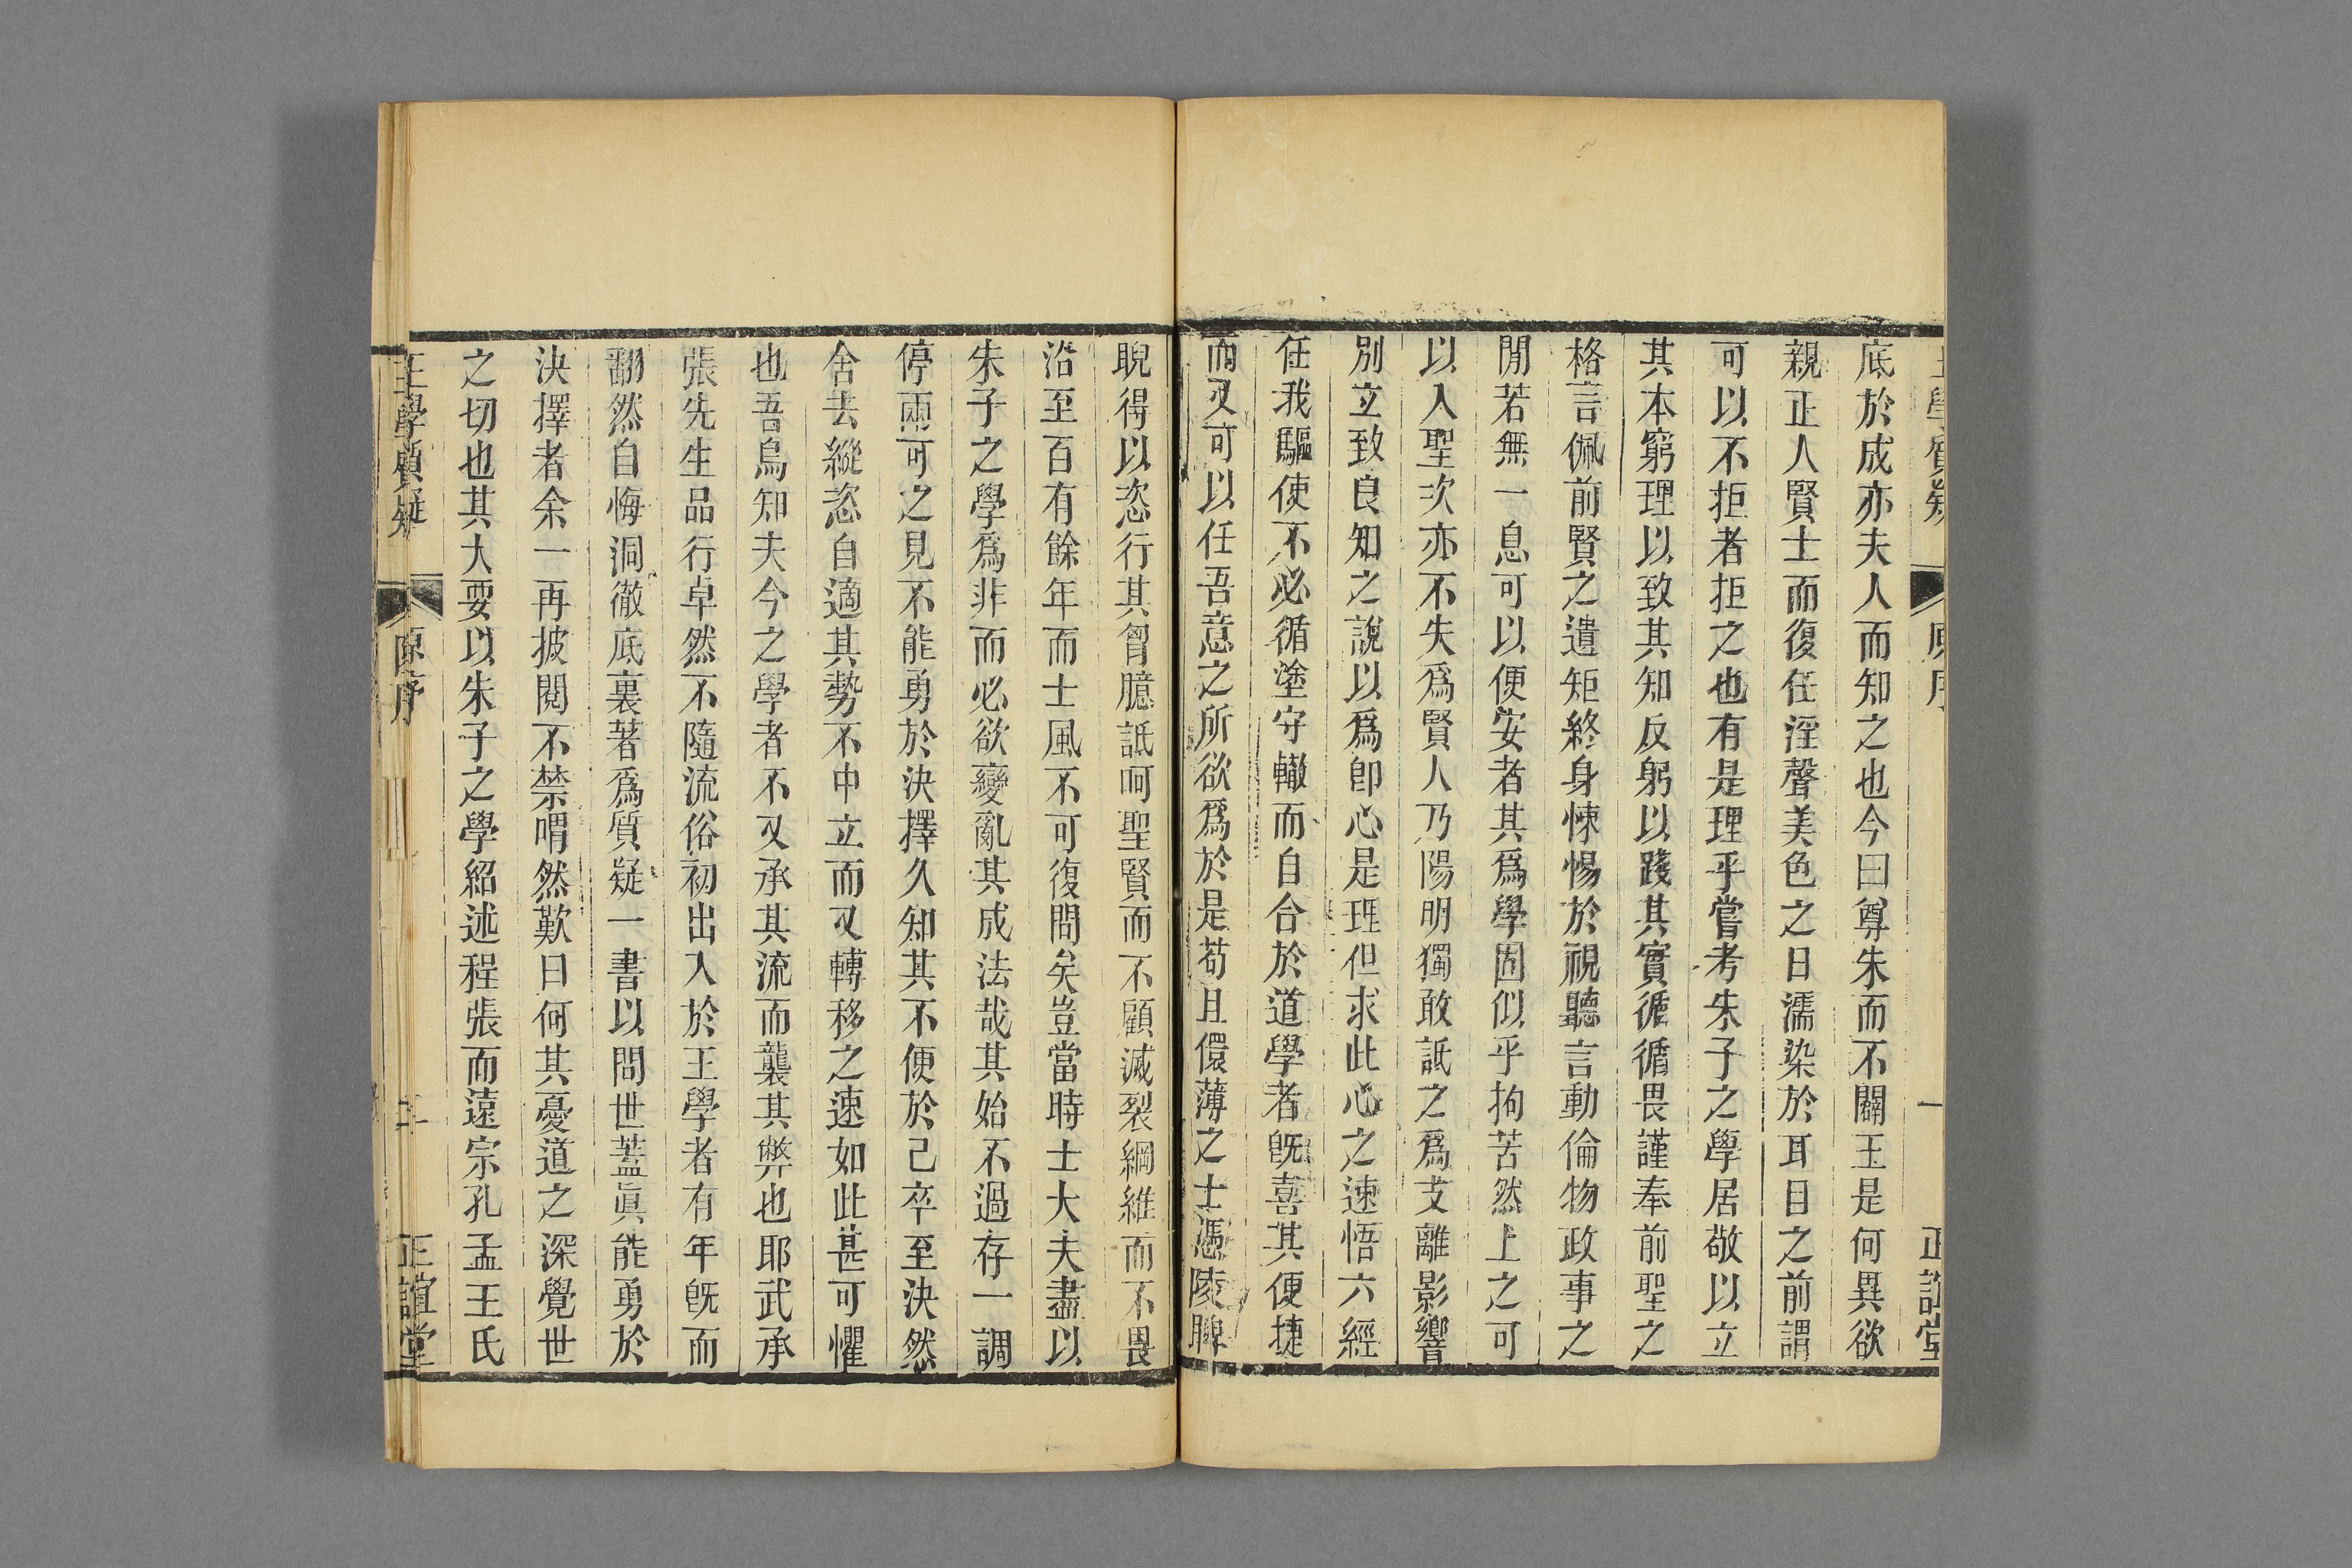 底於成亦夫人而知之也今曰尊朱而不闢王是何異欲
親正人賢士而復任淫聲美色之日濡染於耳目之前謂
可以不拒者拒之也有是理乎嘗考朱子之學居敬以立
其本窮理以致其知反躬以踐其實循循畏謹奉前聖之
格言佩前賢之遺矩終身悚惕於視聽言動倫物政事之
閒若無一息可以便安者其爲學固似乎拘苦然上之可
以入聖次亦不失爲賢人乃陽明獨敢詆之爲支離影響
別立致良知之說以爲卽心是理但求此心之速悟六經
任我驅使不必循塗守轍而自合於道學者旣喜其便捷
而又可以任吾意之所欲爲於是苟且儇薄之士憑陵脾
睨得以恣行其胷臆詆呵聖賢而不顧滅裂綱維而不畏
沿至百有餘年而士風不可復問矣豈當時士大夫盡以
朱子之學爲非而必欲變亂其成法哉其始不過存一調
停兩可之見不能勇於決擇久知其不便於己卒至決然
舍去縱恣自適其勢不中立而又轉移之速如此甚可懼
也吾烏知夫今之學者不又承其流而襲其弊也耶武承
張先生品行卓然不隨流俗初出入於王學者有年旣而
翻然自悔洞徹底裏著爲質疑一書以問世蓋眞能勇於
決擇者余一再披閱不禁喟然歎曰何其憂道之深覺世
之切也其大要以朱子之學紹述程張而遠宗孔孟王氏
王學質疑 原序 二 正誼堂